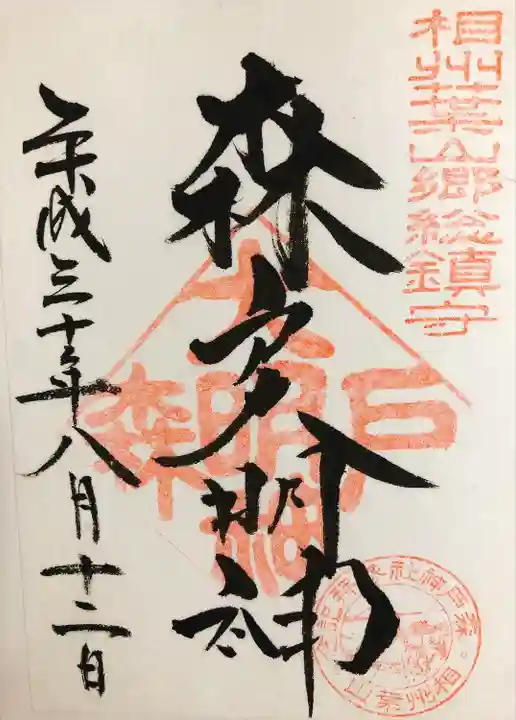 相州葉山郷総鎮守
森戸大明神
森戸大明神
平成三十年八月十二日
相州葉山